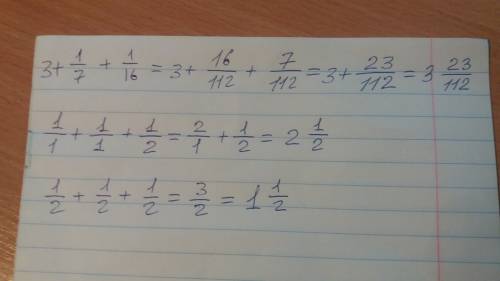 3 + 1/7 + 1/16 = 3 + 16/112 + 7/112 = 3 + 23/112 = 3 23/112
1/1 + 1/1 + 1/2 = 2/1 + 1/2 = 2 1/2
1/2 + 1/2 + 1/2 = 3/2 = 1 1/2